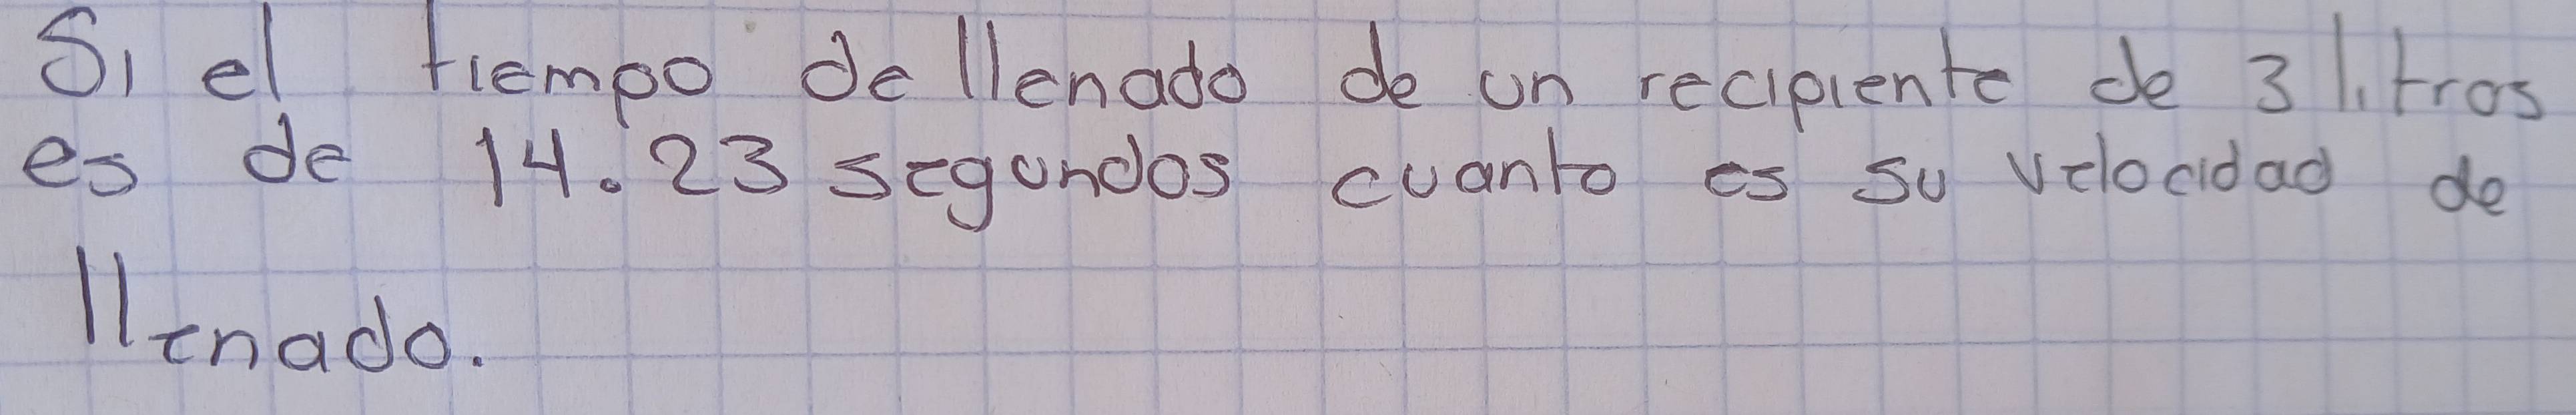 Si el tiempo de llenado de un recipiente de 3 litros
es de 14.23 segundos cuanto es su velocidad de
llenado.